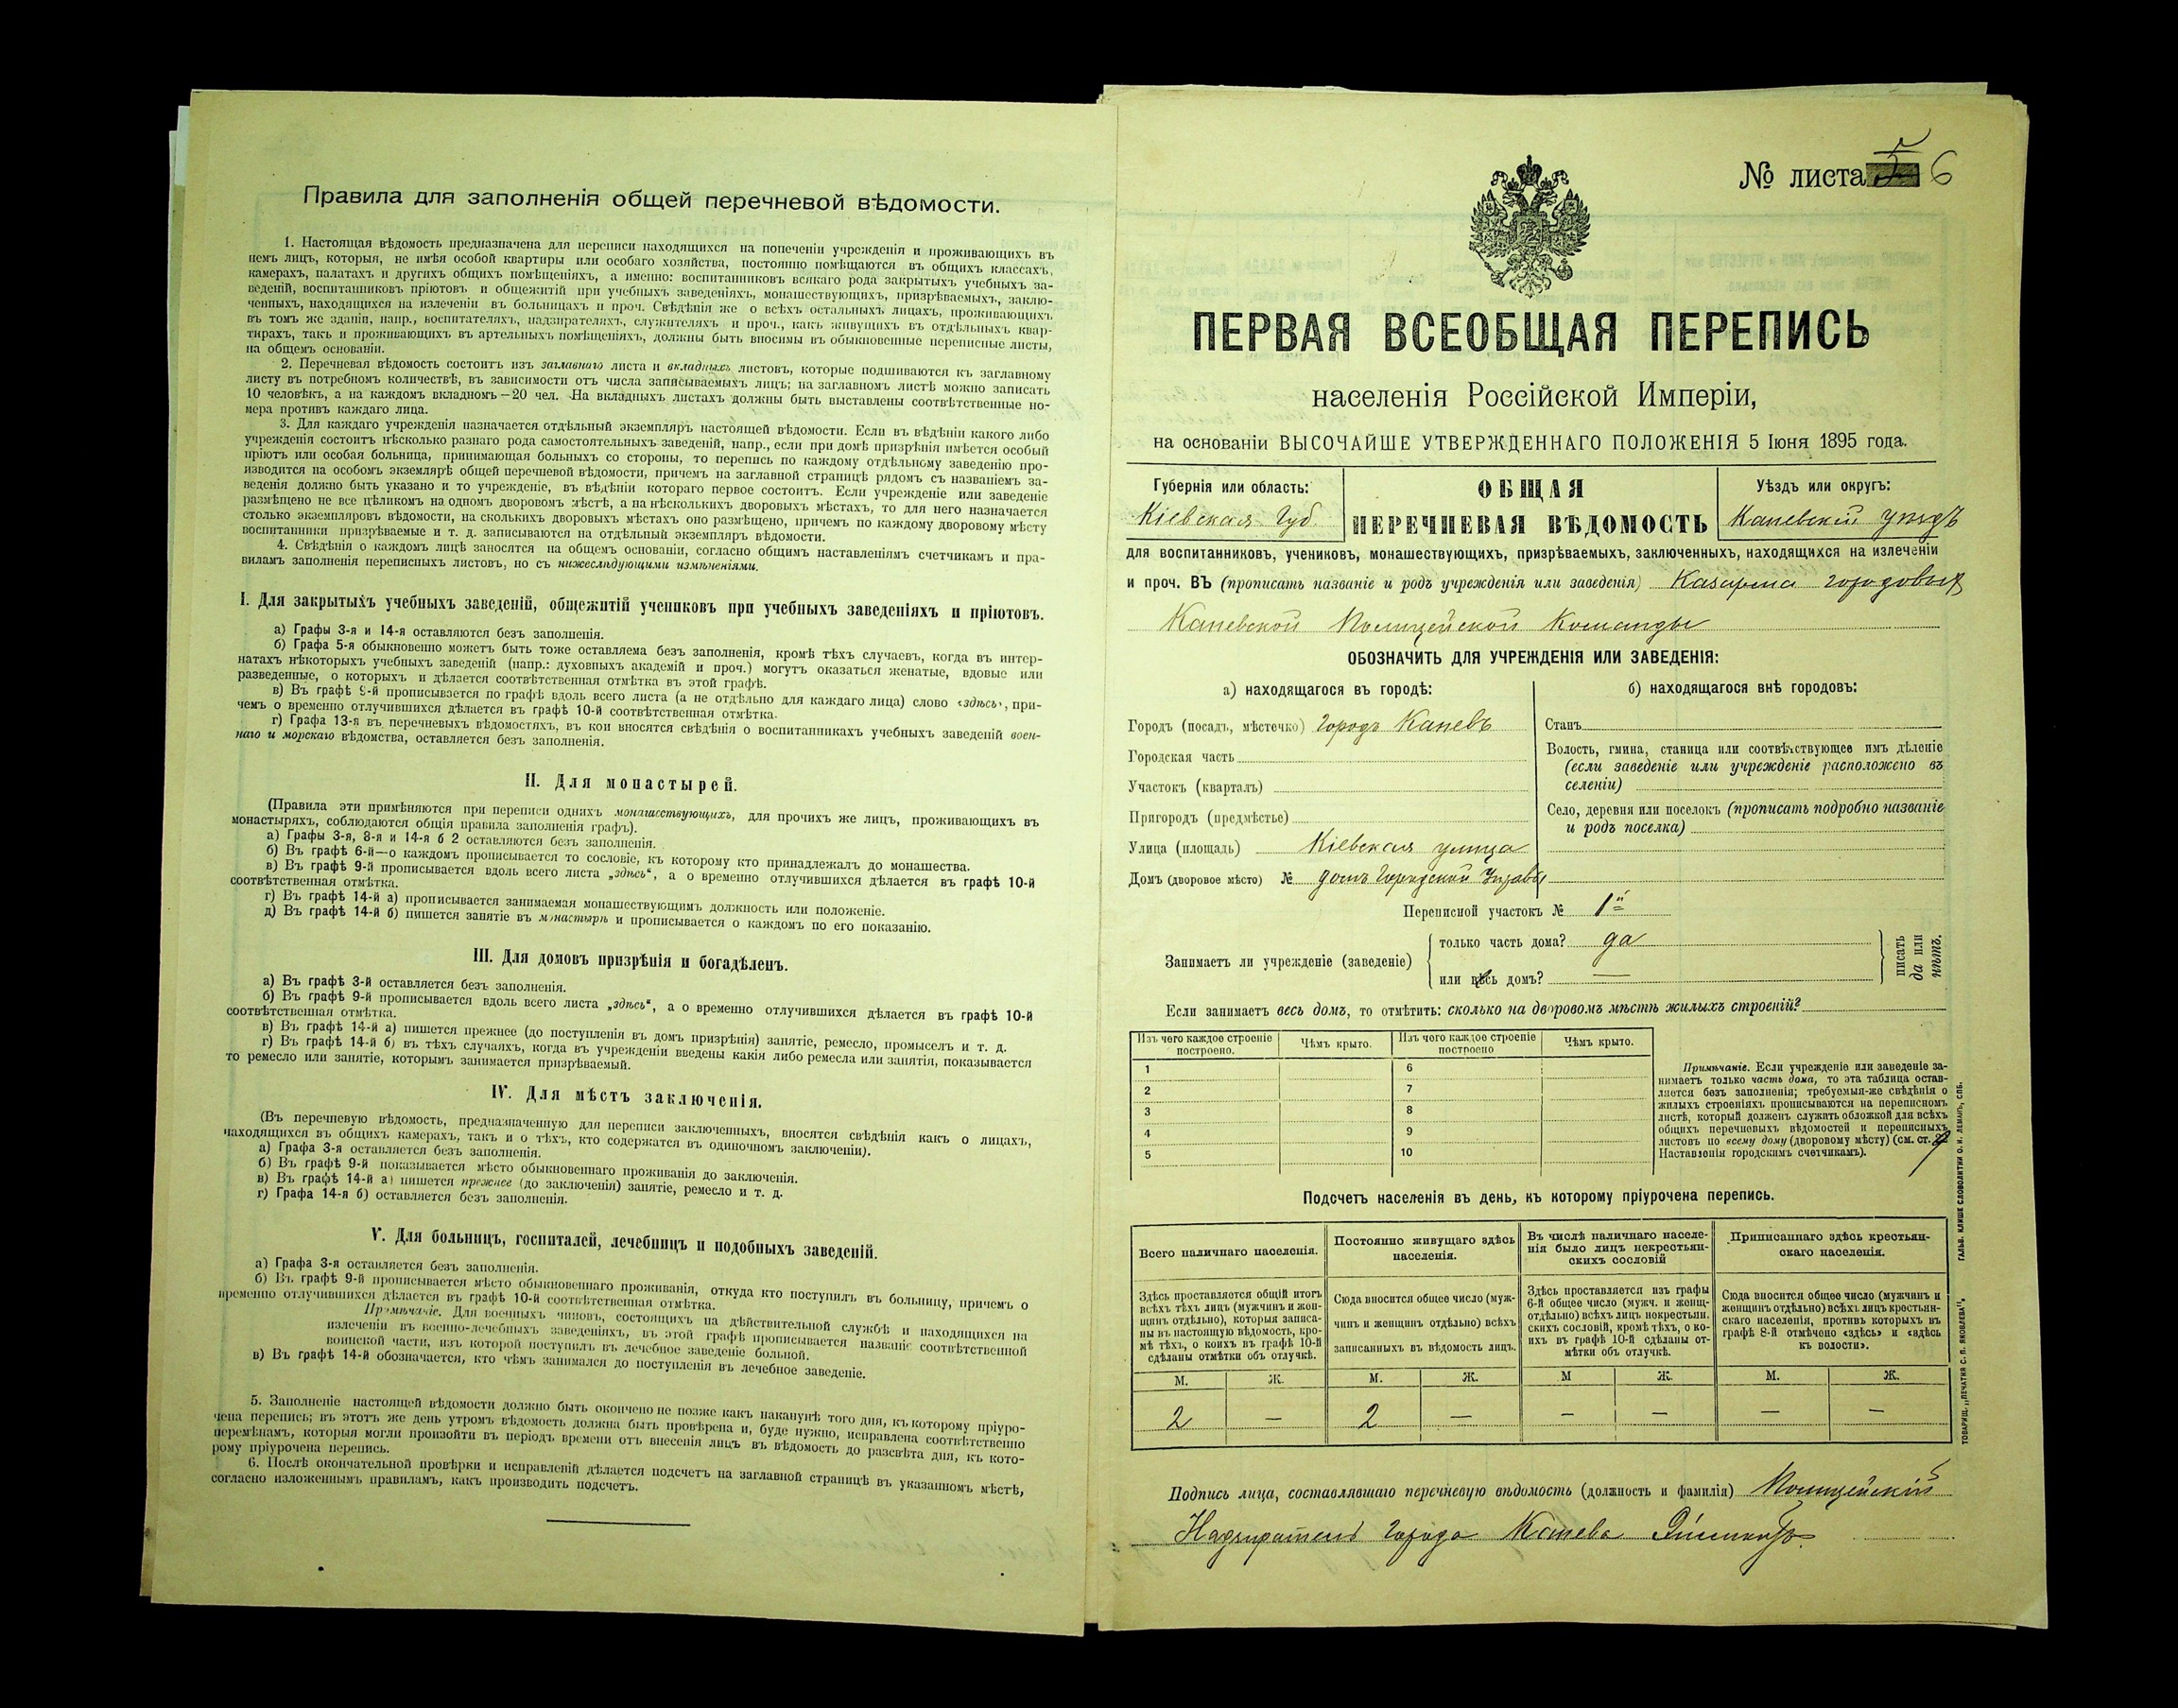 Правила для заполненія общей перечневой вѣдомости.
1. Настоящая вѣдомость предназначена для переписи находящихся на попеченіи учрежденія и проживающихъ въ
немъ лицъ, которыя, не имѣя особой квартиры или особаго хозяйства, постоянно помѣщаются въ общихъ классахъ,
камерахъ, палатахъ и другихъ общихъ помѣщеніяхъ, а именно: воспитанниковъ всякаго рода закрытыхъ учебныхъ за-
веденій, воспитанниковъ пріютовъ и общежитій при учебныхъ заведеніяхъ, монашествующихъ, призрѣваемыхъ, заклю-
ченныхъ, находящихся на излеченіи въ больницахъ и проч. Свѣдѣнія же о всѣхъ остальныхъ лицахъ, проживающихъ
въ томъ же зданіи, напр., воспитателяхъ, надзирателяхъ, служителяхъ и проч., какъ живущихъ въ отдѣльныхъ квар-
тирахъ, такъ и проживающихъ въ артельныхъ помѣщеніяхъ, должны быть вносимы въ обыкновенные переписные листы,
на общемъ основаніи.
2. Перечневая вѣдомость состоитъ изъ заглавнаго листа и вкладныхъ листовъ, которые подшиваются къ заглавному
листу въ потребномъ количествѣ, въ зависимости отъ числа записываемыхъ лицъ; на заглавномъ листѣ можно записать
10 человѣкъ, а на каждомъ вкладномъ — 20 чел. На вкладныхъ листахъ должны быть выставлены соотвѣтственные но-
мера противъ каждаго лица.
3. Для каждаго учрежденія назначается отдѣльный экземпляръ настоящей вѣдомости. Если въ вѣдѣніи какого либо
учрежденія состоитъ нѣсколько разнаго рода самостоятельныхъ заведеній, напр., если при домѣ призрѣнія имѣется особый
пріютъ или особая больница, принимающая больныхъ со стороны, то перепись по каждому отдѣльному заведенію про-
изводится на особомъ экземлярѣ общей перечневой вѣдомости, причемъ на заглавной страницѣ рядомъ съ названіемъ за-
веденія должно быть указано и то учрежденіе, въ вѣдѣніи котораго первое состоитъ. Если учрежденіе или заведеніе
размѣщено не все цѣликомъ на одномъ дворовомъ мѣстѣ, а на нѣсколькихъ дворовыхъ мѣстахъ, то для него назначается
столько экземпляровъ вѣдомости, на сколькихъ дворовыхъ мѣстахъ оно размѣщено, причемъ по каждому дворовому мѣсту
воспитанники призрѣваемые и т. д. записываются на отдѣльный экземпляръ вѣдомости.
4. Свѣдѣнія о каждомъ лицѣ заносятся на общемъ основаніи, согласно общимъ наставленіямъ счетчикамъ и пра-
виламъ заполненія переписныхъ листовъ, но съ нижеслѣдующими измѣненіями.
I. Для закрытыхъ учебныхъ заведеній, общежитій учениковъ при учебныхъ заведеніяхъ и пріютовъ.
а) Графы 3-я и 14-я оставляются безъ заполненія.
б) Графа 5-я обыкновенно можетъ быть тоже оставляема безъ заполненія, кромѣ тѣхъ случаевъ, когда въ интер-
натахъ нѣкоторыхъ учебныхъ заведеній (напр.: духовныхъ академій и проч.) могутъ оказаться женатые, вдовые или
разведенные, о которыхъ и дѣлается соотвѣтственная отмѣтка въ этой графѣ.
в) Въ графѣ 9-й прописывается по графѣ вдоль всего листа (а не отдѣльно для каждаго лица) слово «здѣсь», при-
чемъ о временно отлучившихся дѣлается въ графѣ 10-й соотвѣтственная отмѣтка.
г) Графа 13-я въ перечневыхъ вѣдомостяхъ, въ кои вносятся свѣдѣнія о воспитанникахъ учебныхъ заведеній воен-
наго и морскаго вѣдомства, оставляется безъ заполненія.
II. Для монастырей.
(Правила эти примѣняются при переписи однихъ монашествующихъ, для прочихъ же лицъ, проживающихъ въ
монастыряхъ, соблюдаются общія правила заполненія графъ).
а) Графы 3-я, 8-я и 14-я б 2 оставляются безъ заполненія.
б) Въ графѣ 6-й—о каждомъ прописывается то сословіе, къ которому кто принадлежалъ до монашества.
в) Въ графѣ 9-й прописывается вдоль всего листа „здѣсь“, а о временно отлучившихся дѣлается въ графѣ 10-й
соотвѣтственная отмѣтка.
г) Въ графѣ 14-й а) прописывается занимаемая монашествующимъ должность или положеніе.
д) Въ графѣ 14-й б) пишется занятіе въ монастырѣ и прописывается о каждомъ по его показанію.
III. Для домовъ призрѣнія и богадѣленъ.
а) Въ графѣ 3-й оставляется безъ заполненія.
б) Въ графѣ 9-й прописывается вдоль всего листа „здѣсь“, а о временно отлучившихся дѣлается въ графѣ 10-й
соотвѣтственная отмѣтка.
в) Въ графѣ 14-й а) пишется прежнее (до поступленія въ домъ призрѣнія) занятіе, ремесло, промыселъ и т. д.
г) Въ графѣ 14-й б) въ тѣхъ случаяхъ, когда въ учрежденіи введены какія либо ремесла или занятія, показывается
то ремесло или занятіе, которымъ занимается призрѣваемый.
IV. Для мѣстъ заключенія.
(Въ перечневую вѣдомость, предназначенную для переписи заключенныхъ, вносятся свѣдѣнія какъ о лицахъ,
находящихся въ общихъ камерахъ, такъ и о тѣхъ, кто содержатся въ одиночномъ заключеніи).
а) Графа 3-я оставляется безъ заполненія.
б) Въ графѣ 9-й показывается мѣсто обыкновеннаго проживанія до заключенія.
в) Въ графѣ 14-й а) пишется прежнее (до заключенія) занятіе, ремесло и т. д.
г) Графа 14-я б) оставляется безъ заполненія.
V. Для больницъ, госпиталей, лечебницъ и подобныхъ заведеній.
а) Графа 3-я оставляется безъ заполненія.
б) Въ графѣ 9-й прописывается мѣсто обыкновеннаго проживанія, откуда кто поступилъ въ больницу, причемъ о
временно отлучившихся дѣлается въ графѣ 10-й соотвѣтственная отмѣтка.
Примѣчаніе. Для военныхъ чиновъ, состоящихъ на дѣйствительной службѣ и находящихся на
излеченіи въ военно-лечебныхъ заведеніяхъ, въ этой графѣ прописывается названіе соотвѣтственной
воинской части, изъ которой поступилъ въ лечебное заведеніе больной.
в) Въ графѣ 14-й обозначается, кто чѣмъ занимался до поступленія въ лечебное заведеніе.
5. Заполненіе настоящей вѣдомости должно быть окончено не позже какъ наканунѣ того дня, къ которому пріуро-
чена перепись; въ этотъ же день утромъ вѣдомость должна быть провѣрена и, буде нужно, исправлена соотвѣтственно
перемѣнамъ, которыя могли произойти въ періодъ времени отъ внесенія лицъ въ вѣдомость до разсвѣта дня, къ кото-
рому пріурочена перепись.
6. Послѣ окончательной провѣрки и исправленій дѣлается подсчетъ на заглавной страницѣ въ указанномъ мѣстѣ,
согласно изложеннымъ правиламъ, какъ производить подсчетъ.
№ листа 5 6
ПЕРВАЯ ВСЕОБЩАЯ ПЕРЕПИСЬ
населенія Россійской Имперіи,
на основаніи ВЫСОЧАЙШЕ УТВЕРЖДЕННАГО ПОЛОЖЕНІЯ 5 Іюня 1895 года.
Губернія или область:
Кіевская Губ.
ОБЩАЯ
ПЕРЕЧНЕВАЯ ВѢДОМОСТЬ
Уѣздъ или округъ:
Каневскій уѣздъ
для воспитанниковъ, учениковъ, монашествующихъ, призрѣваемыхъ, заключенныхъ, находящихся на излеченіи
и проч. ВЪ (прописать названіе и родъ учрежденія или заведенія) Казарма городовыхъ
Каневской Полицейской Команды
ОБОЗНАЧИТЬ ДЛЯ УЧРЕЖДЕНІЯ ИЛИ ЗАВЕДЕНІЯ:
а) находящагося въ городѣ:
Городъ (посадъ, мѣстечко) городъ Каневъ
Городская часть
Участокъ (кварталъ)
Пригородъ (предмѣстье)
Улица (площадь) Кіевская улица
Домъ (дворовое мѣсто) № домъ Городской Управы
б) находящагося внѣ городовъ:
Станъ
Волость, гмина, станица или соотвѣтствующее имъ дѣленіе
(если заведеніе или учрежденіе расположено въ
селеніи)
Село, деревня или поселокъ (прописать подробно названіе
и родъ поселка)
Переписной участокъ № 1й
Занимаетъ ли учрежденіе (заведеніе)
только часть дома? да
или весь домъ? —
писать
да или
нѣтъ.
Если занимаетъ весь домъ, то отмѣтить: сколько на дворовомъ мѣстѣ жилыхъ строеній?
Изъ чего каждое строеніе
построено.
Чѣмъ крыто.
Изъ чего каждое строеніе
построено
Чѣмъ крыто.
1 6
2 7
3 8
4 9
5 10
Примѣчаніе. Если учрежденіе или заведеніе за-
нимаетъ только часть дома, то эта таблица остав-
ляется безъ заполненія; требуемыя-же свѣдѣнія о
жилыхъ строеніяхъ прописываются на переписномъ
листѣ, который долженъ служить обложкой для всѣхъ
общихъ перечневыхъ вѣдомостей и переписныхъ
листовъ по всему дому (дворовому мѣсту) (см. ст.
Наставленія городскимъ счетчикамъ).
Подсчетъ населенія въ день, къ которому пріурочена перепись.
Всего наличнаго населенія.
Постоянно живущаго здѣсь
населенія.
Въ числѣ наличнаго населе-
нія было лицъ некрестьян-
скихъ сословій
Приписаннаго здѣсь крестьян-
скаго населенія.
Здѣсь проставляется общій итогъ
всѣхъ тѣхъ лицъ (мужчинъ и жен-
щинъ отдѣльно), которыя записа-
ны въ настоящую вѣдомость, кро-
мѣ тѣхъ, о коихъ въ графѣ 10-й
сдѣланы отмѣтки объ отлучкѣ.
Сюда вносится общее число (муж-
чинъ и женщинъ отдѣльно) всѣхъ
записанныхъ въ вѣдомость лицъ.
Здѣсь проставляется изъ графы
6-й общее число (мужч. и женщ.
отдѣльно) всѣхъ лицъ некрестьян-
скихъ сословій, кромѣ тѣхъ, о ко-
ихъ въ графѣ 10-й сдѣланы от-
мѣтки объ отлучкѣ.
Сюда вносится общее число (мужчинъ и
женщинъ отдѣльно) всѣхъ лицъ крестьян-
скаго населенія, противъ которыхъ въ
графѣ 8-й отмѣчено «здѣсь» и «здѣсь
къ волости».
М. Ж. М. Ж. М Ж. М. Ж.
2 — 2 — — — — —
Подпись лица, составлявшаго перечневую вѣдомость (должность и фамилія) Полицейскій
Надзиратель города Канева
ТОВАРИЩ. „ПЕЧАТНЯ С. П. ЯКОВЛЕВА“. ГАЛЬВ. КЛИШЕ СЛОВОЛИТНИ О. И. ЛЕМАНЪ, СПБ.